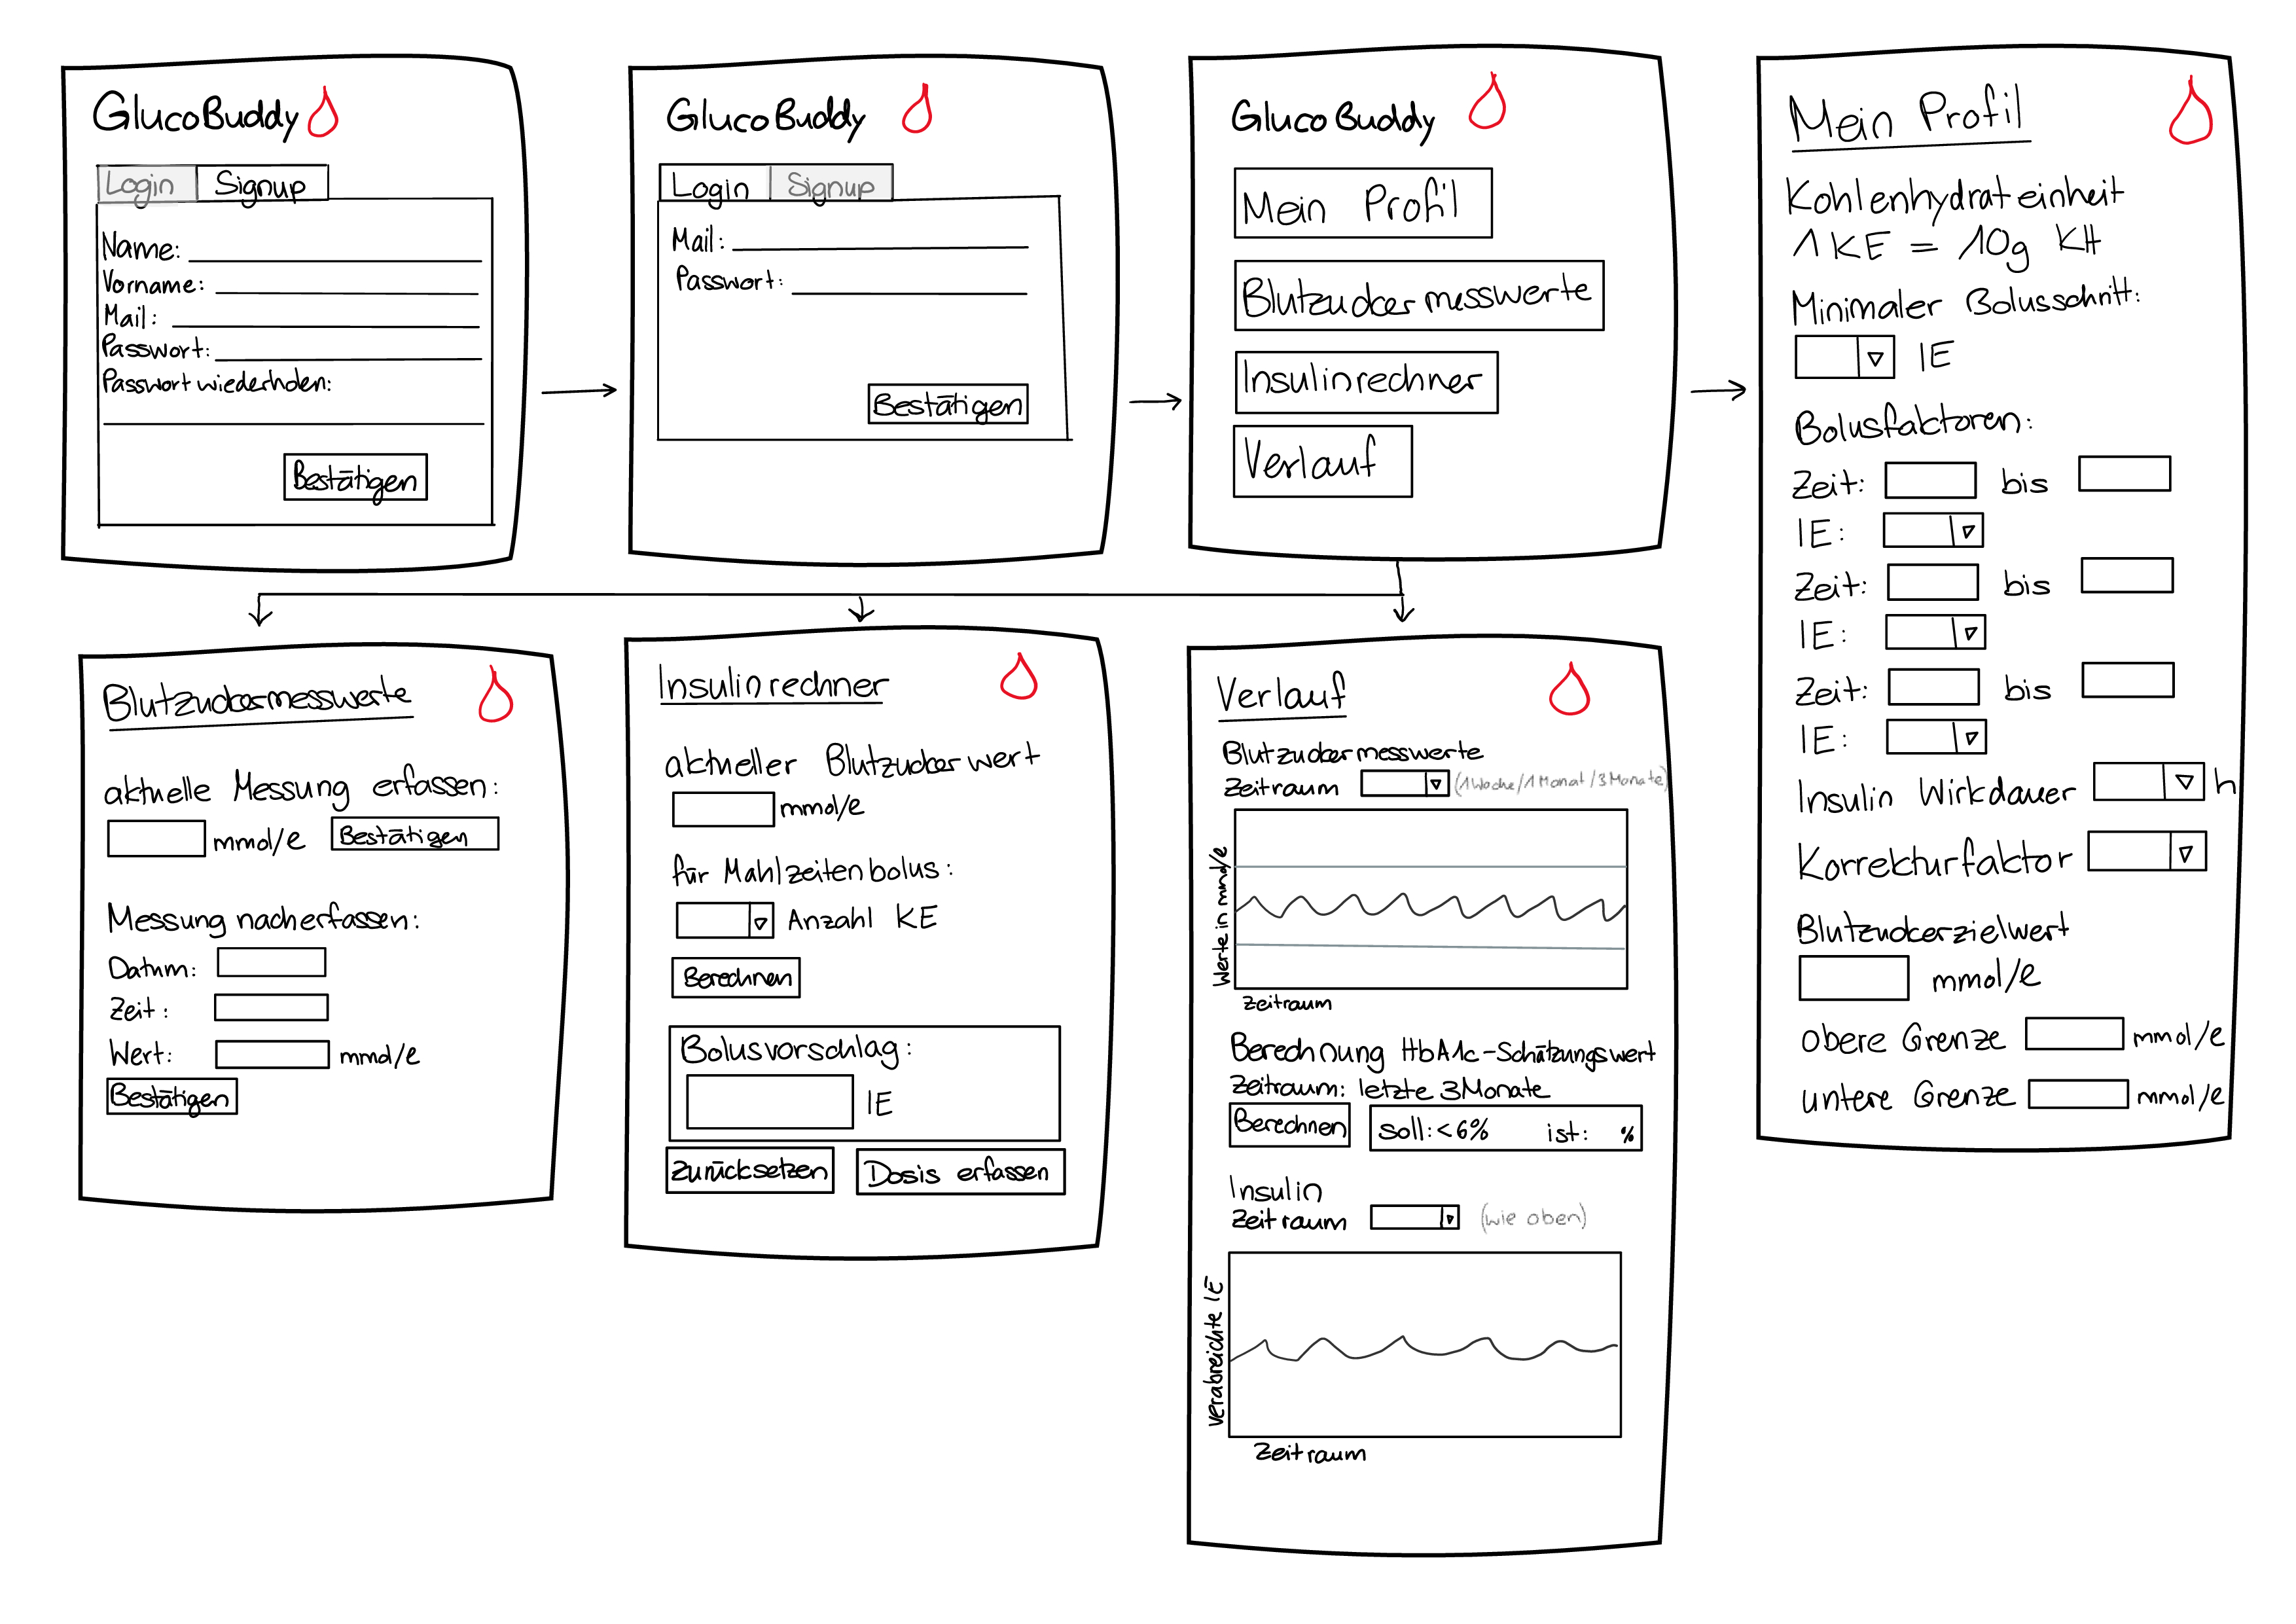 GlucoBuddy
Login Signup
Name:
Vorname:
Mail:
Passwort:
Passwort wiederholen:
Bestätigen
GlucoBuddy
Login Signup
Mail:
Passwort:
Bestätigen
GlucoBuddy
Mein Profil
Blutzuckermesswerte
Insulinrechner
Verlauf
Mein Profil
Kohlenhydrateinheit
1 KE = 10g KH
Minimaler Bolusschritt:
IE
Bolusfaktoren:
Zeit: bis
IE:
Zeit: bis
IE:
Zeit: bis
IE:
Insulin Wirkdauer h
Korrekturfaktor
Blutzuckerzielwert
mmol/l
obere Grenze mmol/l
untere Grenze mmol/l
Blutzuckermesswerte
aktuelle Messung erfassen:
mmol/l Bestätigen
Messung nacherfassen:
Datum:
Zeit:
Wert: mmol/l
Bestätigen
Insulinrechner
aktueller Blutzuckerwert
mmol/l
für Mahlzeitenbolus:
Anzahl KE
Berechnen
Bolusvorschlag:
IE
Zurücksetzen Dosis erfassen
Verlauf
Blutzuckermesswerte
Zeitraum (1 Woche/1 Monat/3 Monate)
Werte in mmol/l
Zeitraum
Berechnung HbA1c-Schätzungswert
Zeitraum: letzte 3 Monate
Berechnen soll: <6% ist: %
Insulin
Zeitraum (wie oben)
verabreichte IE
Zeitraum